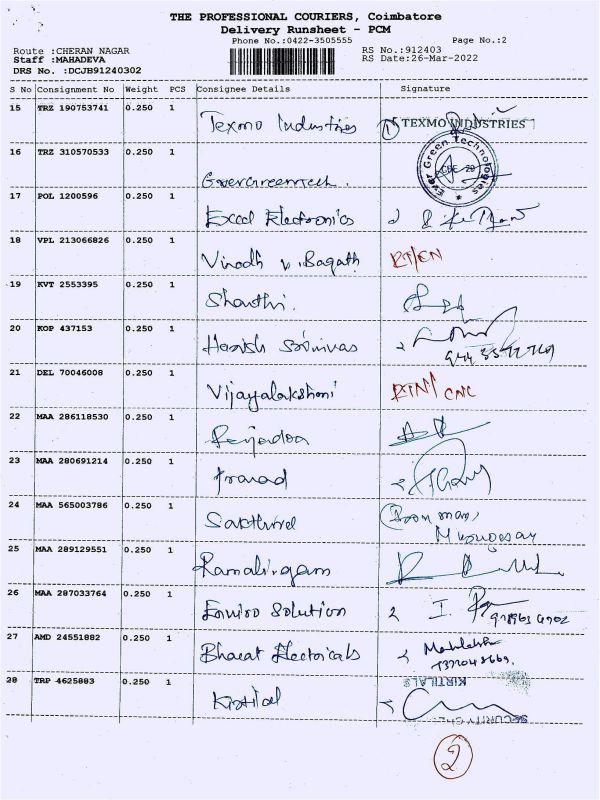 THE PROFESSIONAL COURIERS, Coimbatore
Delivery Runsheet - PCM
Phone No.:0422-3505555
Page No.:2
Route :CHERAN NAGAR
RS No.:912403
Staff :MAHADEVA
RS Date:26-Mar-2022
DRS No. :DCJB91240302
S No Consignment No Weight PCS Consignee Details Signature
15 TRZ 190753741 0.250 1 Texmo Industries TEXMO INDUSTRIES
16 TRZ 310570533 0.250 1 Evergreentech. Ever Green Technologies
17 POL 1200596 0.250 1 Excel Electronics
18 VPL 213066826 0.250 1 Vinodh v. Bagath
19 KVT 2553395 0.250 1 Shanthi.
20 KOP 437153 0.250 1 Harish Srinivas
21 DEL 70046008 0.250 1 Vijayalakshmi RTN/ CNC
22 MAA 286118530 0.250 1
23 MAA 280691214 0.250 1 Pranad
24 MAA 565003786 0.250 1 Sakthivel
Murugesan
25 MAA 289129551 0.250 1 Ramalingam
26 MAA 287033764 0.250 1 Enviro Solution
27 AMD 24551882 0.250 1 Bharat Electricals
28 TRP 4625883 0.250 1 Kirtilal KIRTILALS
2